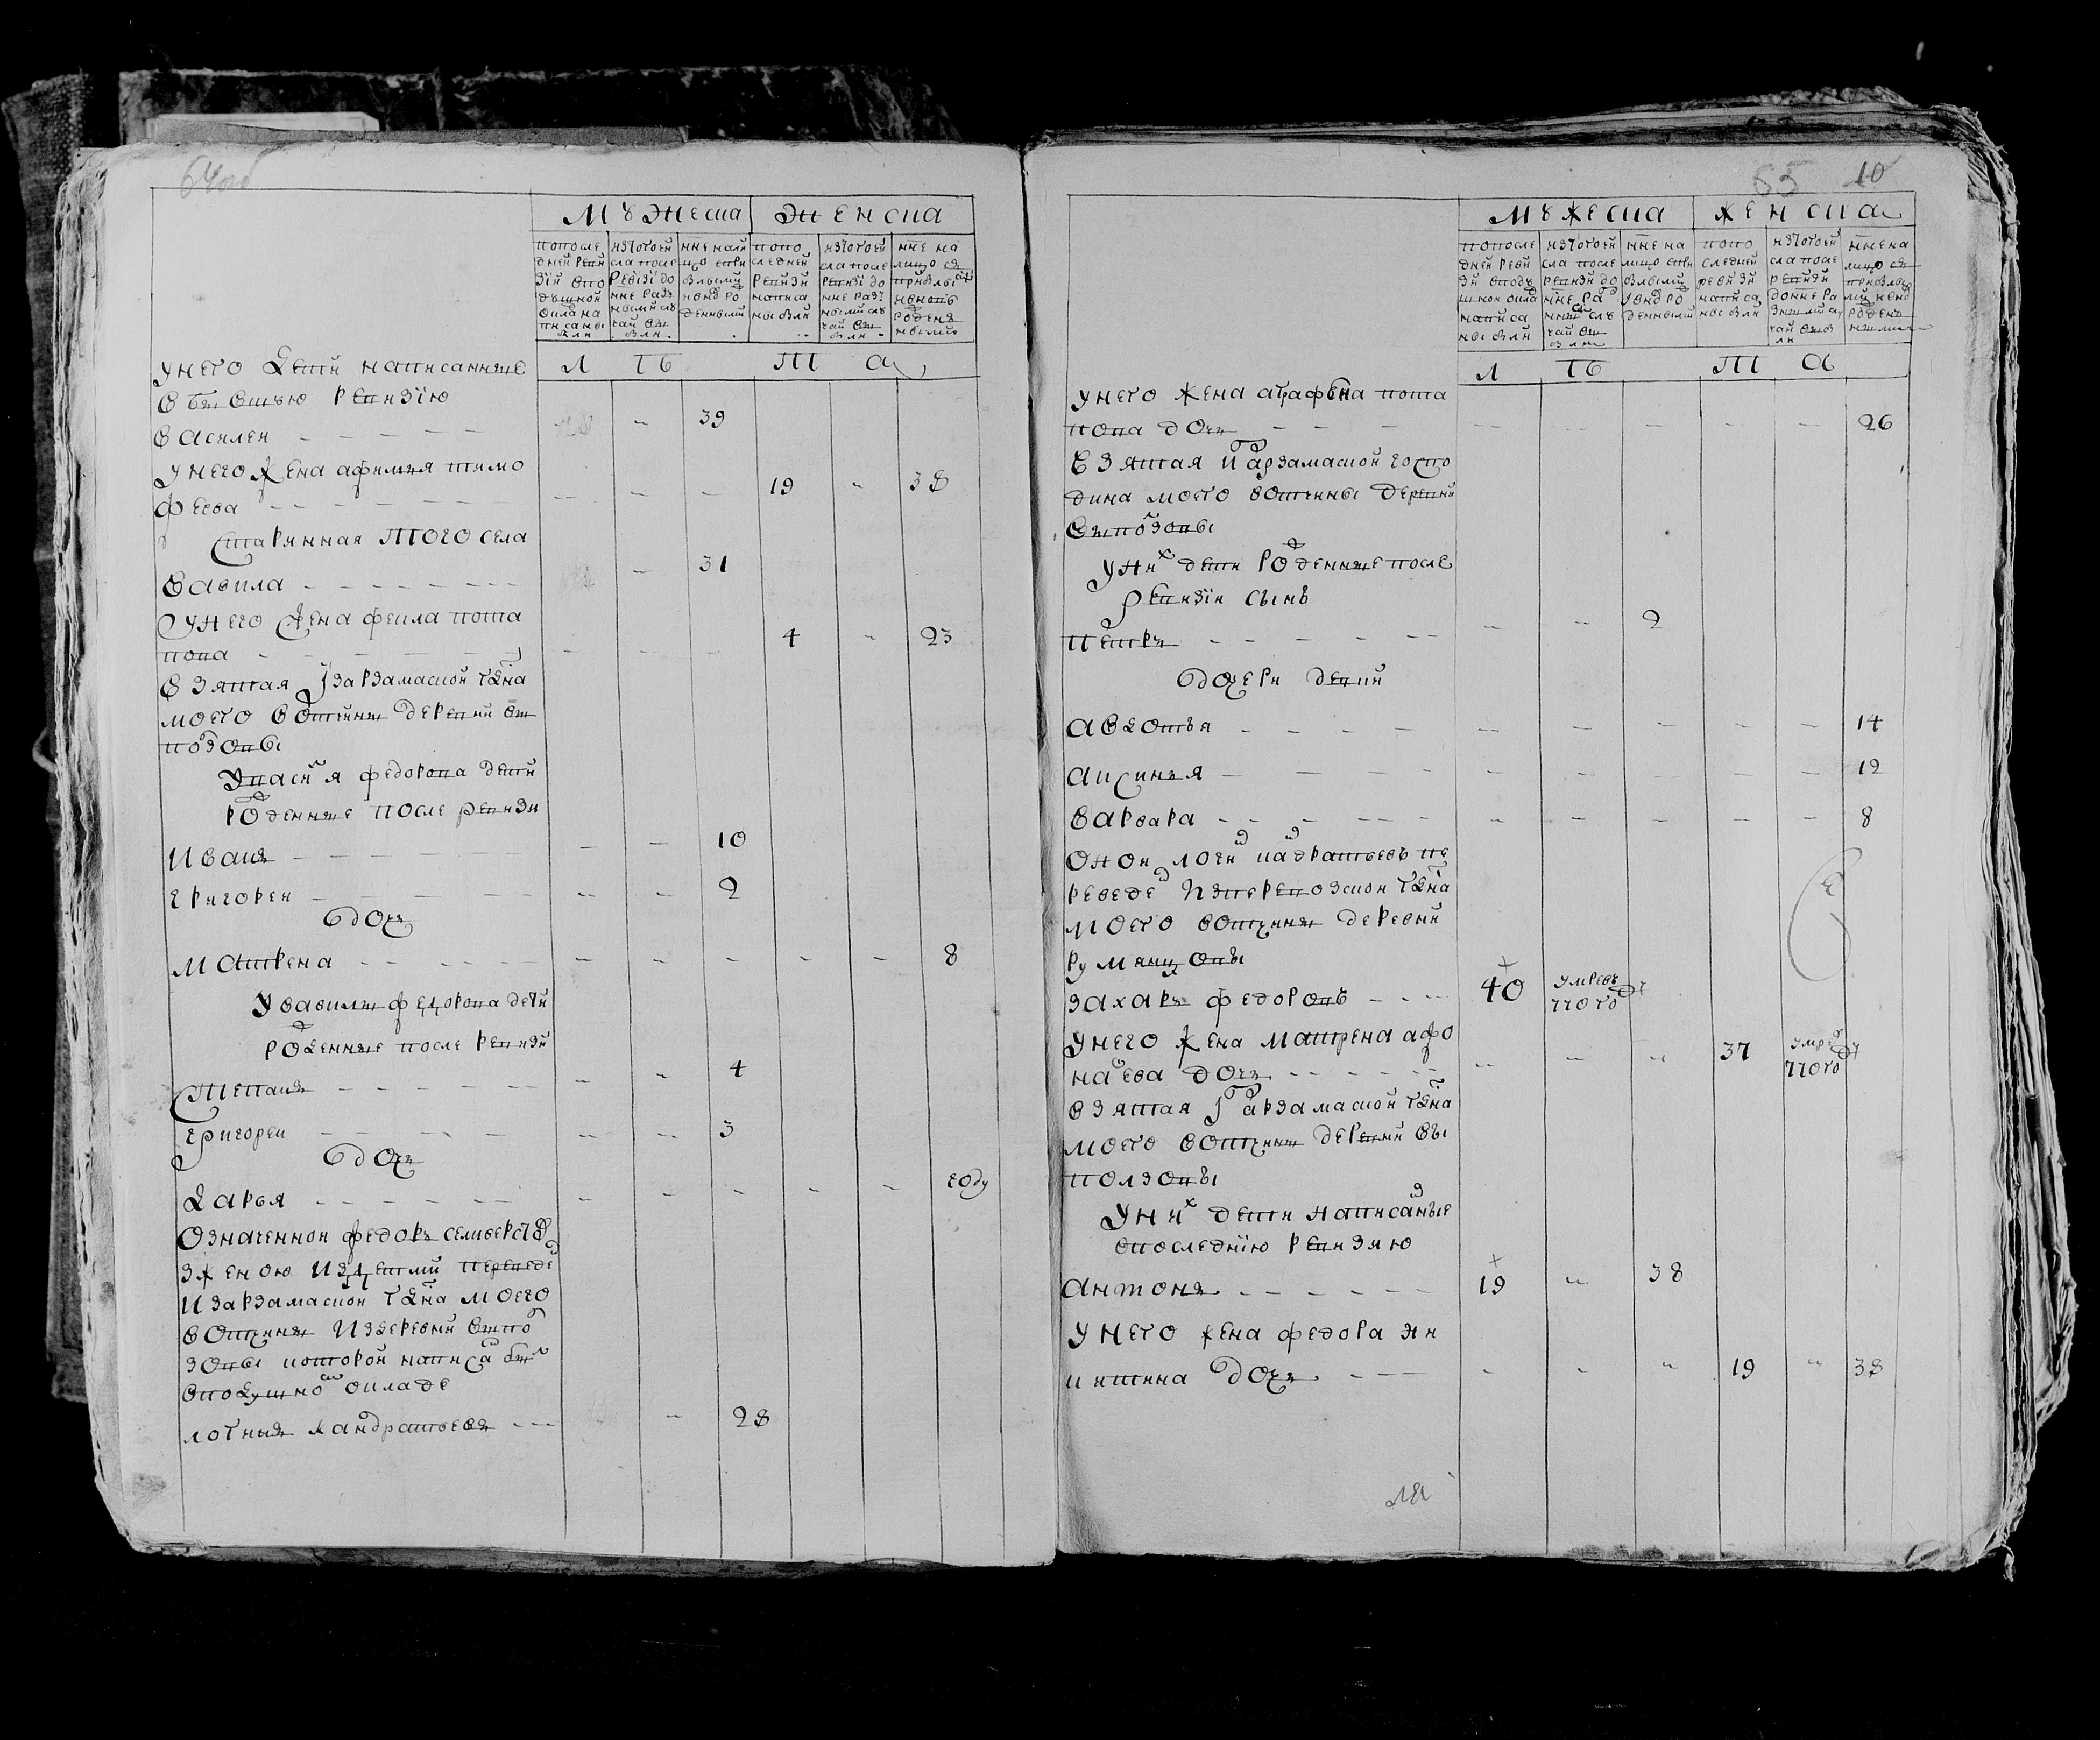 64об
Мужеска Женска
попоследней ревизии вподушной оклад написаны были
изтого числа после ревизїи до ныне разными случаи выбыли
ныне налицо сприбылыми и вновь рожденными
попоследней ревизии написаны были
изтого числа после ревизїи до ныне разными случаи выбыли
ныне налицо сприбылыми и вновь рожденными
Л ТЪ Т А
унего дети написанные
вбывшую ревизїю
василеи - - - - - " 39
унего жена афимья тимо
феева - - - - - - - - 19 " 38
старинная того села
вавила - - - - - - - 31
унего жена фекла пота
пова - - - - - - - 4 " 23
взятая изарзамаской гдна
моего вотчины деревни вы
ползовы
увасилья федорова дети
рожденные после ревизи
иванъ - - - - - - - - 10
григореи - - - - - - - 2
дочь
матрена - - - - - - - - - - 8
увавилы федорова дети
рожденные после ревизи
степанъ - - - - - - - " 4
григореи - - - - - " " 3
дочь
дарья - - - - - - - - - - году
означеннои федоръ селиверстов
зженою издетми переведен
изарзамаскои гдна моего
вотчины издеревни выпол
зовы которой написан был
вподушном окладе
логинъ кандратьевъ - - - " 28
65 10
Мужеска женска
попоследней ревизи вподушной оклад написаны были
изтого числа после ревизи до ныне разными случаи выбыли
ныне налицо сприбылыми и вновь рожденными
попоследней ревизи написаны были
изтого числа после ревизи до ныне разными случаи выбыли
ныне налицо сприбылыми и вновь рожденными
Л ТЪ Т А
унего жена аграфена пота
пова дочь - - - - - - - - 26
взятая изарзамаской госпо
дина моего вотчины деревни
выползовы
уних дети рожденные после
ревизїи сынъ
петръ - - - - - - - - 2
дочери девки
авдотья - - - - - - - - - 14
аксинья - - - - - - - - - 12
варвара - - - - - - - - - 8
онои логин кандратьевъ пе
реведен изперевозской гдна
моего вотчины деревни
румянцовы
захаръ федоровъ - - - 40 умревъ 770 году
унего жена матрена афо
насева дочь - - - - - - - " 37 умре въ 770 го
взятая изарзамаскои гдна
моего вотчины деревни вы
ползовы
уних дети написаные
впоследнїю ревизяю
антонъ - - - - - - 19 " 38
унего жена федора ни
китина дочь - - - - " " 19 " 38